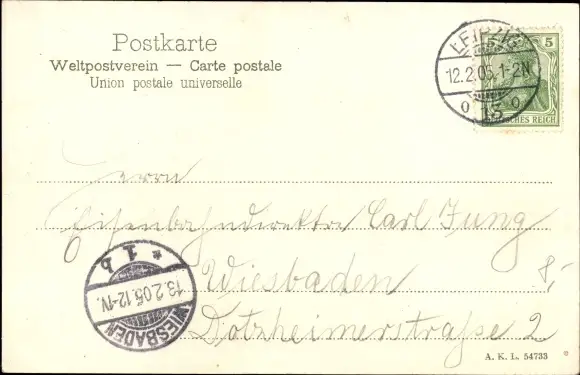 Postkarte
Weltpostverein — Carte postale
Union postale universelle
5 5
DEUTSCHES REICH
LEIPZIG
12.2.05.1-2N
o 15 o
Herrn
Eisenbahndirektor Carl Jung
Wiesbaden
8,-
Dotzheimerstraße 2
* 1 b
13.2.05.12-1V.
WIESBADEN
A. K. L. 54733